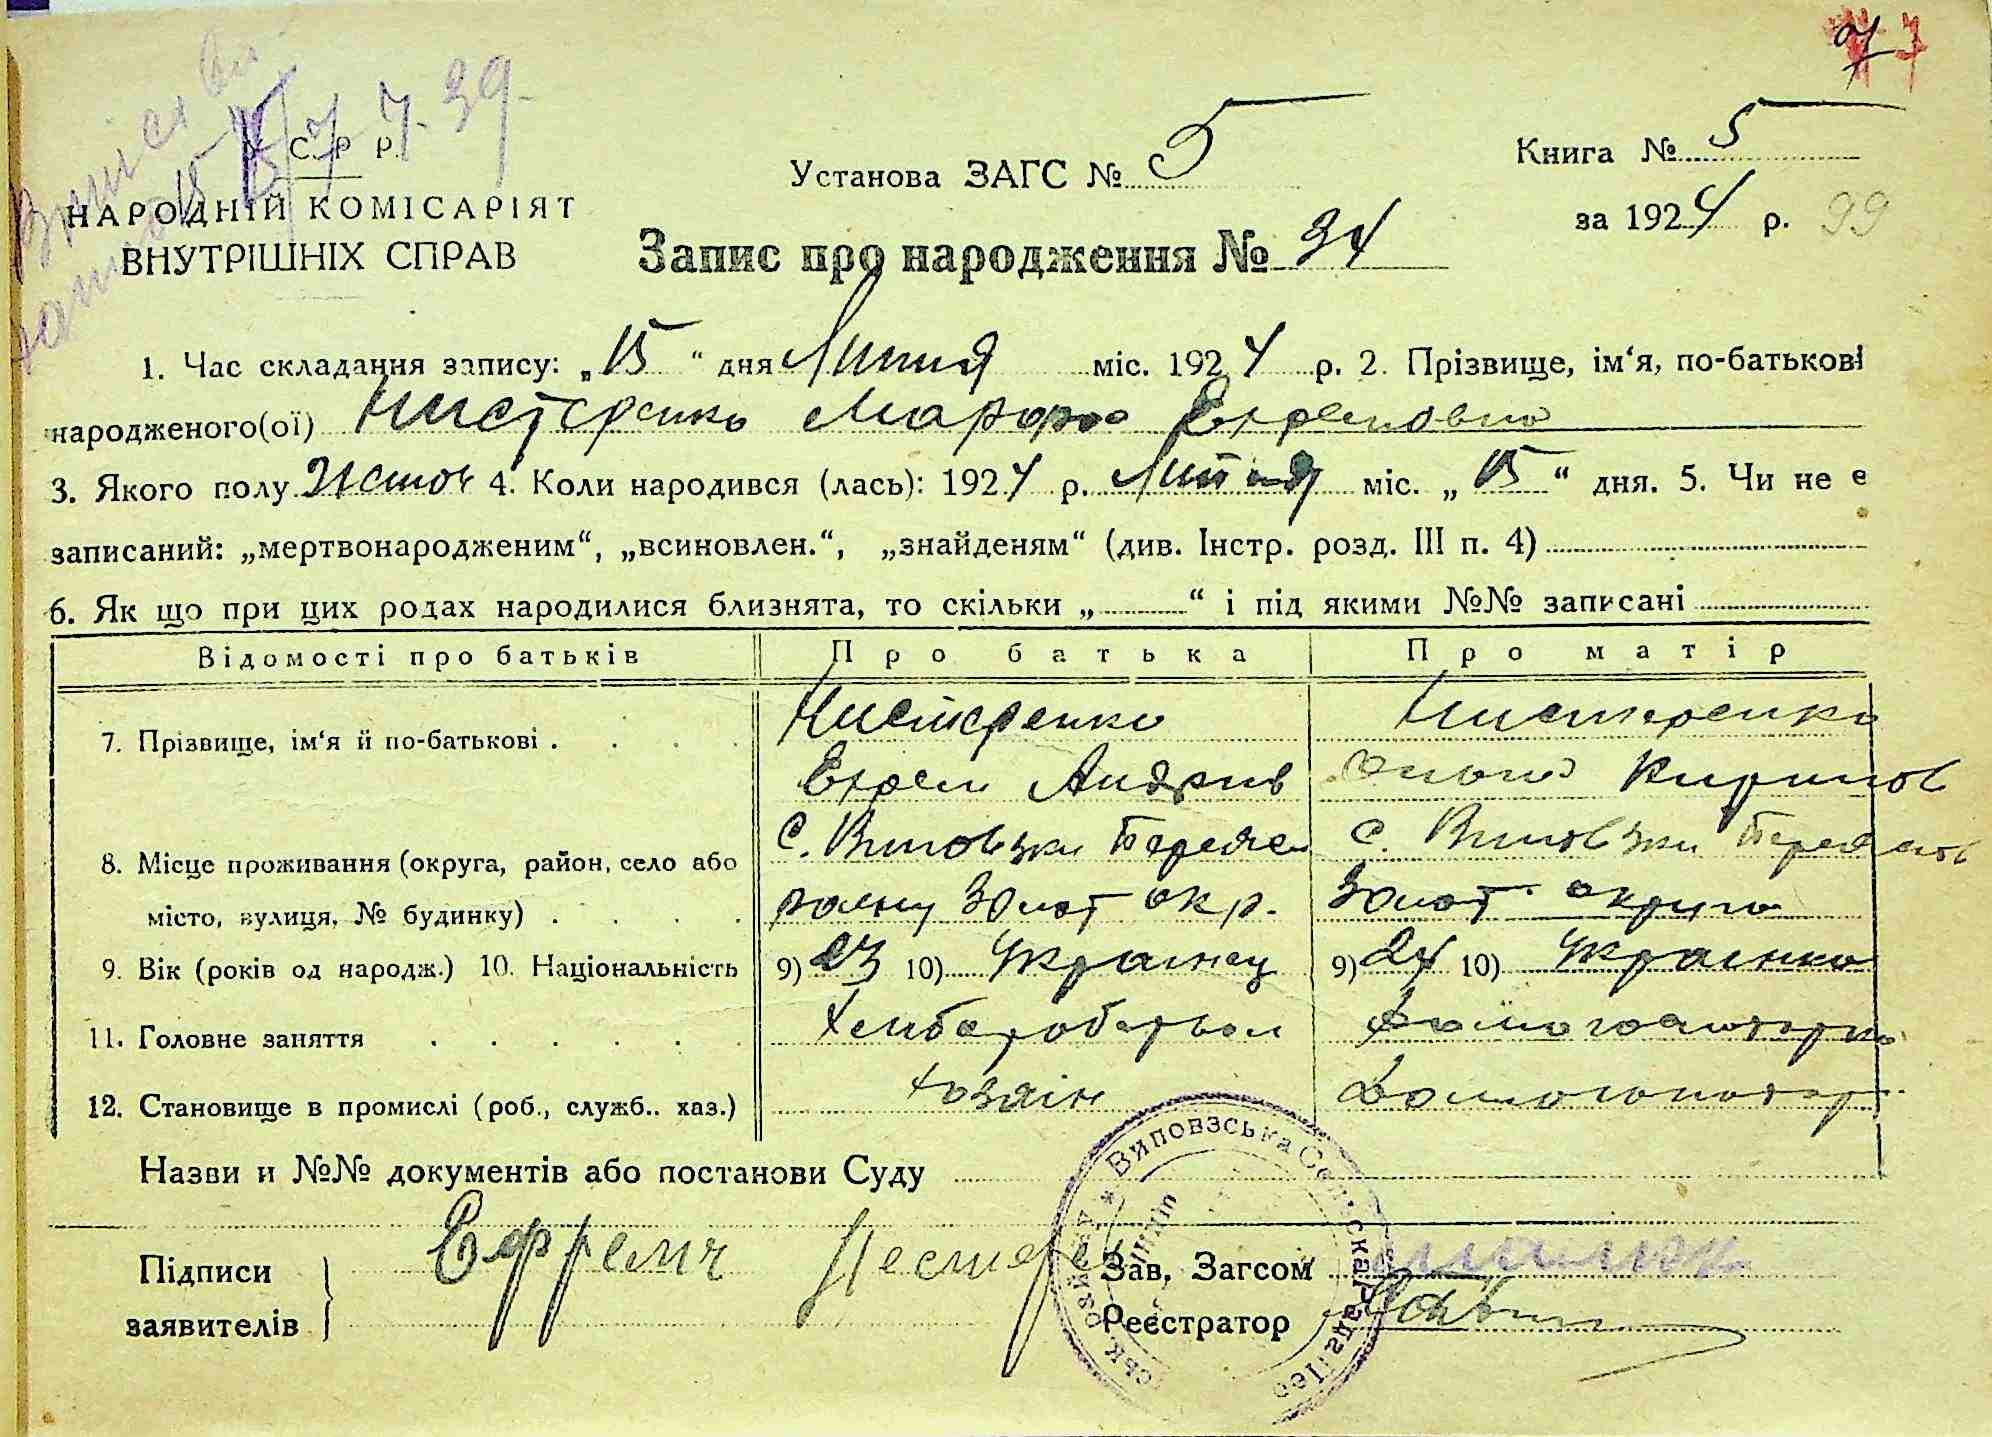 7 7
У. С. Р Р.
7. 39.
НАРОДНІЙ КОМІСАРІЯТ
ВНУТРІШНІХ СПРАВ
Установа ЗАГС № 5
Книга № 5
за 1924 р. 99
Запис про народження № 34
1. Час складання запису: „15“ дня Липня міс. 1924 р. 2. Прізвище, ім‘я, по-батькові
народженого(ої) Нистеренко Марфа Ехремовна
3. Якого полу Женсов 4. Коли народився (лась): 1924 р. Липня міс. „15“ дня. 5. Чи не є
записаний: „мертвонародженим“, „всиновлен.“, „знайденям“ (див. Інстр. розд. III п. 4)
6. Як що при цих родах народилися близнята, то скільки „ “ і під якими №№ записані
Відомості про батьків Про батька Про матір
7. Прізвище, ім‘я й по-батькові . . . . Нистеренко Нистеренко
Ехрем Андріив Кирилов
8. Місце проживання (округа, район, село або С. Виповзки Переяс С. Виповзки Переяслов
місто, вулиця, № будинку) . . . . району Золот окр. Золот округа
9. Вік (років од народж.) 10. Національність 9) 23 10) Украінец 9) 24 10) Украінка
11. Головне заняття . . . . . . Хлибаробством Домогосподарка
12. Становище в промислі (роб., служб.. хаз.) хозяін Домогосподар
Назви и №№ документів або постанови Суду
Підписи
заявителів
Ефрем Нестере
Зав. Загсом
Реєстратор
Виповзська Сельська Рада